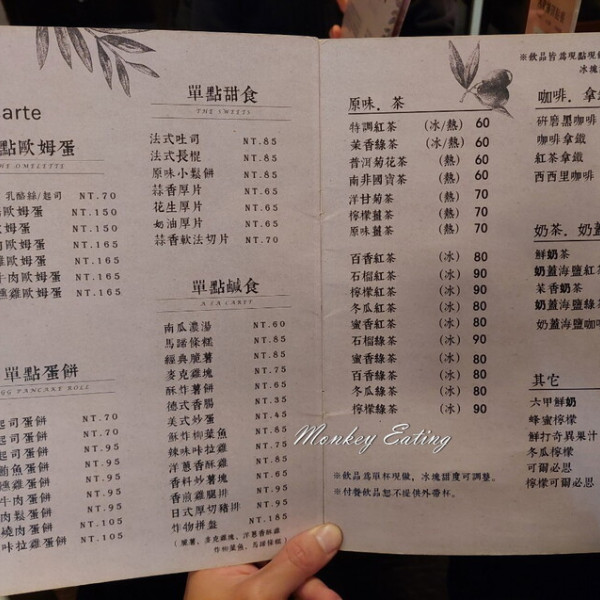 arte
點歐姆蛋
HE OMELETTE
乳酪絲/起司 NT.70
歐姆蛋 NT.150
歐姆蛋 NT.150
肉歐姆蛋 NT.165
雞歐姆蛋 NT.165
牛肉歐姆蛋 NT.165
燻雞歐姆蛋 NT.165
單點蛋餅
EGG PANCAKE ROLL
起司蛋餅 NT.70
起司蛋餅 NT.70
司蛋餅 NT.95
鮪魚蛋餅 NT.95
燻雞蛋餅 NT.95
牛肉蛋餅 NT.95
肉鬆蛋餅 NT.95
燒肉蛋餅 NT.105
咔拉雞蛋餅 NT.105
單點甜食
THE SWEETS
法式吐司 NT.85
法式長棍 NT.85
原味小鬆餅 NT.85
蒜香厚片 NT.65
花生厚片 NT.65
奶油厚片 NT.65
蒜香軟法切片 NT.70
單點鹹食
A LA CARTE
南瓜濃湯 NT.60
馬蹄條糕 NT.85
經典脆薯 NT.85
麥克雞塊 NT.75
酥炸薯餅 NT.65
德式香腸 NT.35
美式炒蛋 NT.45
酥炸柳葉魚 NT.85
辣味咔拉雞 NT.75
洋蔥香酥雞 NT.85
香料炒薯塊 NT.65
香煎雞腿排 NT.95
日式厚切豬排 NT.95
炸物拼盤 NT.185
(脆薯、麥克雞塊、洋蔥香酥雞
炸柳葉魚、馬蹄條糕)
原味．茶
特調紅茶 (冰/熱) 60
茉香綠茶 (冰/熱) 60
普洱菊花茶 (熱) 60
南非國寶茶 (熱) 60
洋甘菊茶 (熱) 70
檸檬薑茶 (熱) 70
原味薑茶 (熱) 70
百香紅茶 (冰) 80
石榴紅茶 (冰) 90
檸檬紅茶 (冰) 90
冬瓜紅茶 (冰) 80
蜜香紅茶 (冰) 80
石榴綠茶 (冰) 90
蜜香綠茶 (冰) 80
百香綠茶 (冰) 80
冬瓜綠茶 (冰) 80
檸檬綠茶 (冰) 90
※飲品為單杯現做，冰塊甜度可調整。
※付餐飲品恕不提供外帶杯。
※飲品皆為現點現
冰塊
咖啡．拿
研磨黑咖啡
咖啡拿鐵
紅茶拿鐵
西西里咖啡
奶茶．奶蓋
鮮奶茶
奶蓋海鹽紅茶
茉香奶茶
奶蓋海鹽綠
奶蓋海鹽咖
其它
六甲鮮奶
蜂蜜檸檬
鮮打奇異果汁
冬瓜檸檬
可爾必思
檸檬可爾必思
Monkey Eating